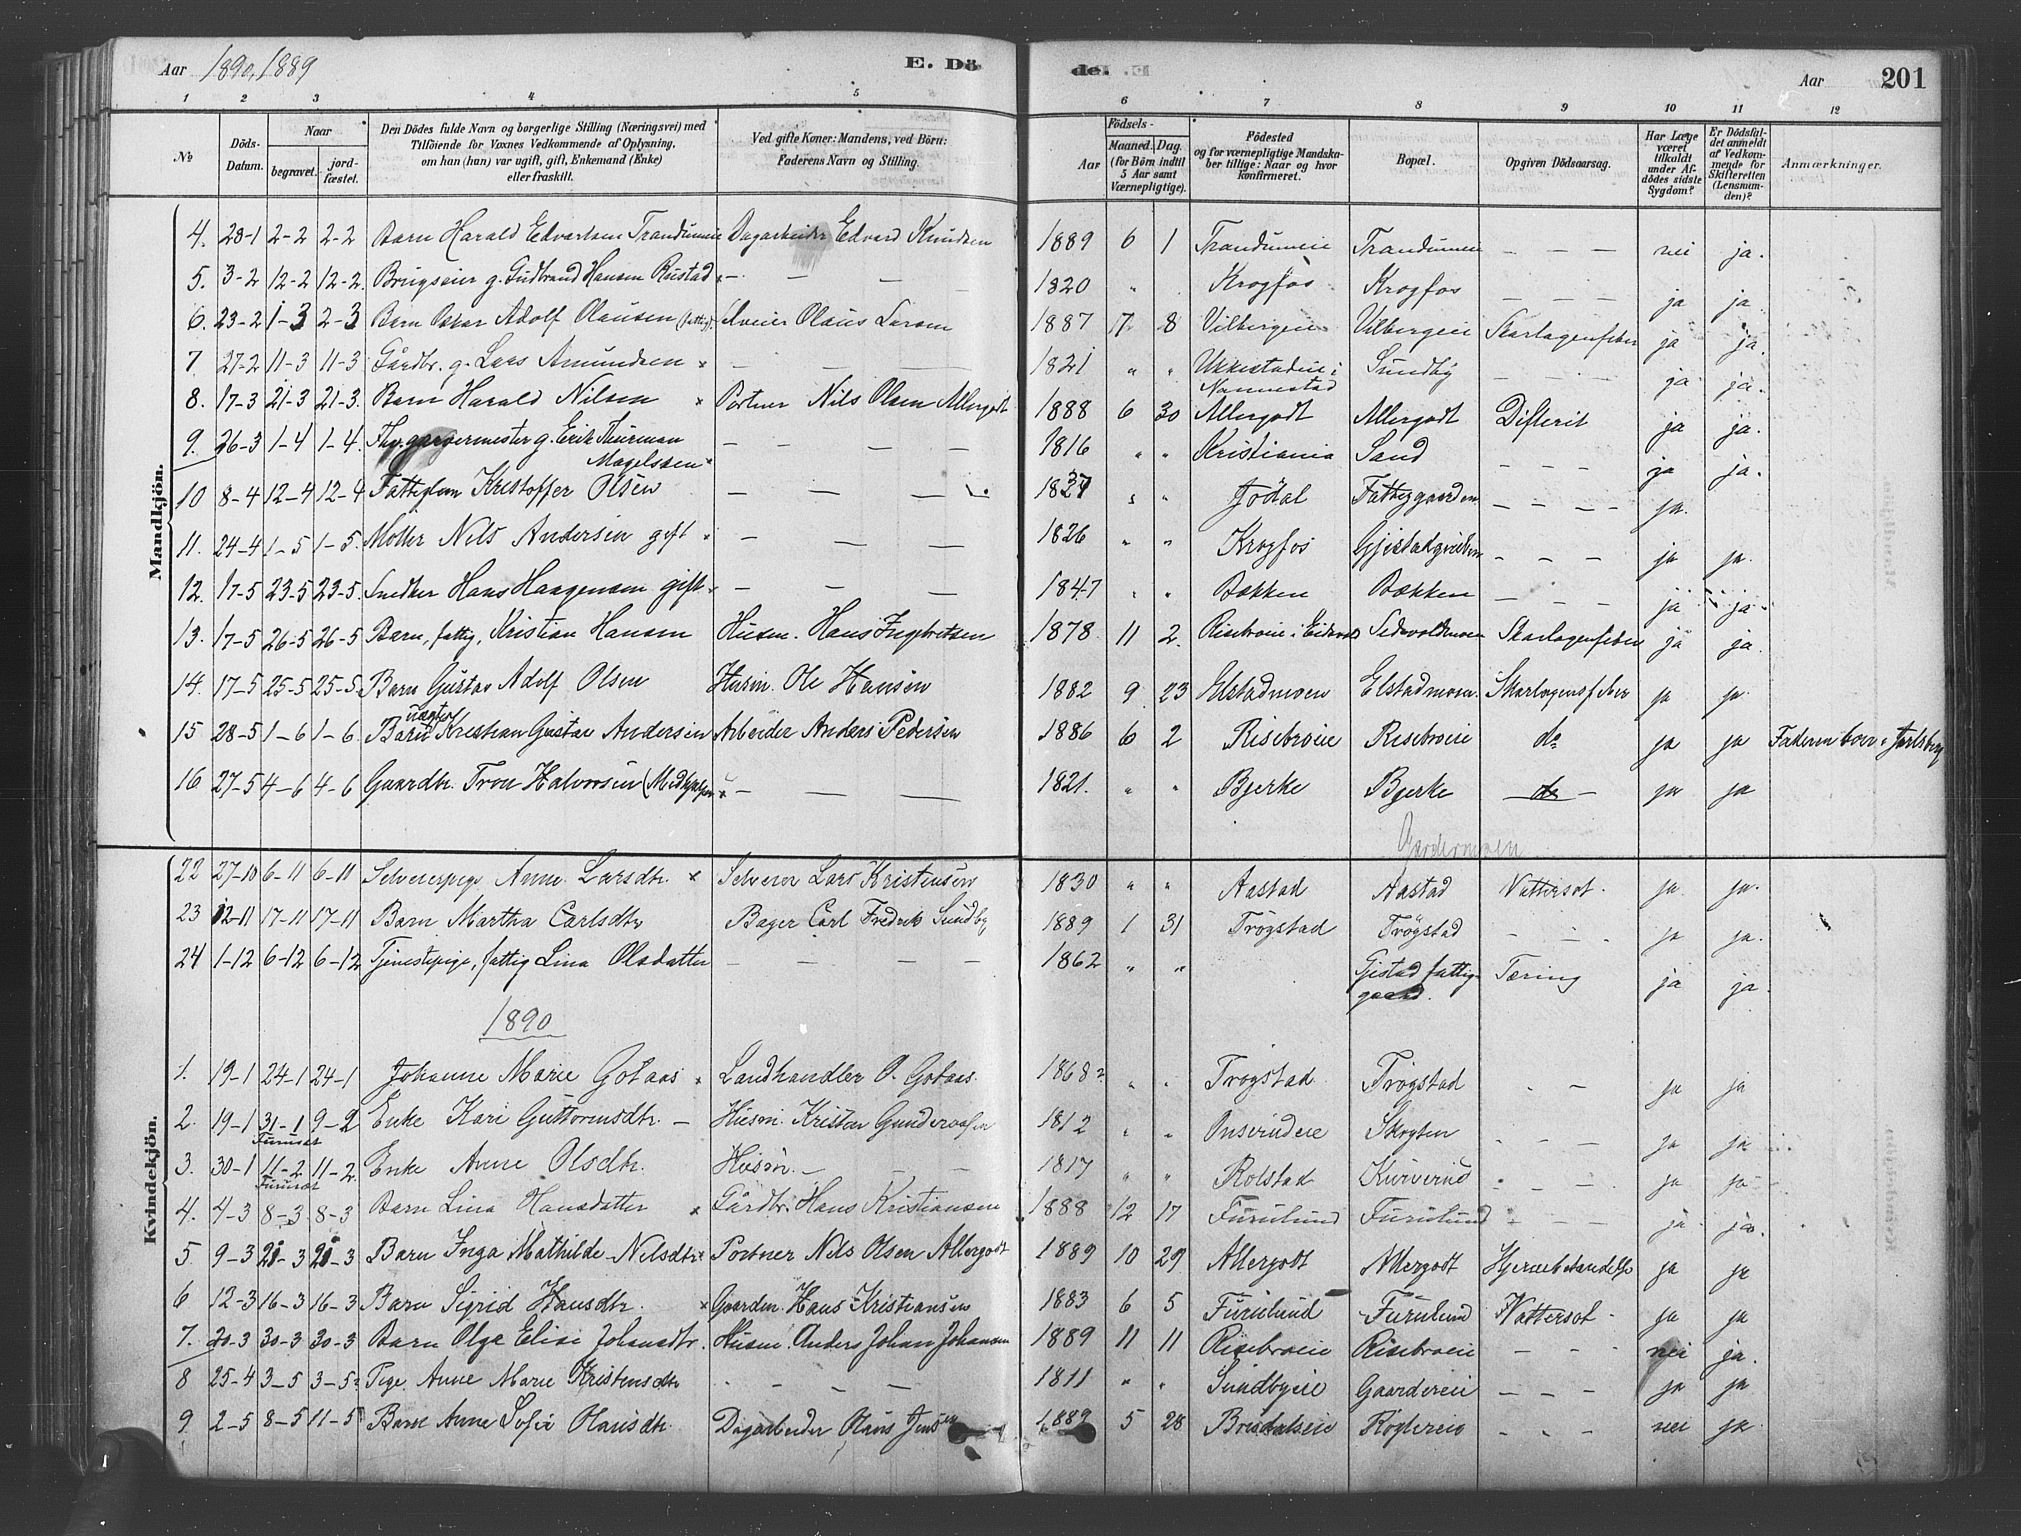 Aar 1890, 1889
E. Dö
de.
Aar 201
1 2 3 4 5 6 7 8 9 10 11 12
№ Döds-Datum. Naar begravet. jord-fæstet. Den Dödes fulde Navn og borgerlige Stilling (Næringsvei) med Tilföiende for Voxnes Vedkommende af Oplysning, om han (hun) var ugift, gift, Enkemand (Enke) eller fraskilt. Ved gifte Koner: Mandens, ved Börn: Faderens Navn og Stilling. Födsels- Aar Maaned. Dag. (for Börn indtil 5 Aar samt Værnepligtige). Födested og for værnepligtige Mandskaber tillige: Naar og hvor konfirmeret. Bopæl. Opgiven Dödsaarsag. Har Læge været tilkaldt under Afdödes sidste Sygdom? Er Dödsfaldet anmeldt af Vedkommende for Skifteretten (Lensmanden)? Anmærkninger.
Mandkjön.
4. 28-1 2-2 2-2 Barn Harald Edvartsen Trandumeie Dagarbeider Edvard Knudsen 1889 6 1 Trandumeie Trandumeie — — — nei ja.
5. 3-2 12-2 12-2. Brugseier g. Gudbrand Hansen Rustad — — — 1820 " " Krogfos Krogfos — — — ja ja.
6. 23-2 1-3 2-3 Barn Oskar Adolf Olausen (fattig) Olaus Larsen 1887 7 8 Vilbergeie Vilbergeie Skarlagensfeber ja ja.
7. 27-2 11-3 11-3 Gårdbr. g. Lars Amundsen — — — 1821 " " Ukkestadeie i Nannestad Sundby — — — ja ja.
8. 17-3 21-3 21-3. Barn Harald Nilsen Portner Nils Olsen Allergodt 1888 6 30 Allergodt Allergodt Difterit ja ja.
9. 26-3 1-4 1-4. garvermester g. Erik Thurman Magelssen — — — 1816 " " Kristiania Sand — — — ja ja.
10 8-4 12-4 12-4 Fattiglem Kristoffer Olsen — — — Jödal Fattiggaarden — — — ja.
11. 24-4 1-5 1-5. Møller Nils Andersen gift — — — 1826 " " Krogfos — — — ja ja.
12. 17-5 23-5 23-5. Snedker Hans Haagensen gift — — — 1847 " " Bækken Bækken — — — ja ja
13. 17-5 26-5 26-5 Barn, fattig, Kristian Hansen Husm. Hans Ingebretsen 1878. 11 2. Risebroeie i Eidsvold Skarlagensfeber ja ja.
14. 17-5 25-5 25-5 Barn Gustav Adolf Olsen Husm. Ole Hansen 1882 9 23 Elstadmoen Elstadmoen. Skarlagensfeber ja ja.
15 28-5 1-6 1-6. uægte Barn Kristian Gustav Andersen Arbeider Anders Pedersen 1886 6 2 Risebroeie Risebroeie do ja ja Faderen boer i Jarlsberg
16. 27-5 4-6 4-6 Gaardbr. Tron Halvorsen (Medhjælper) — — — 1821. " " Bjerke Bjerke do — ja ja
Gardermoen
Kvindekjön.
22 27-10 6-11 6-11 Selveierpige Anne Larsdtr. Selveier Lars Kristensen 1830 " " Aastad Aastad Vattersot. ja ja.
23 12-11 17-11 17-11 Barn Martha Carlsdtr Bager Carl Fredrik Sundby 1889 1 31 Trögstad Trögstad - - - ja ja.
24 1-12 6-12 6-12 Tjenestepige, fattig Lina Olsdatter — — — — 1862 " " Gjestad fattiggaard. Tæring ja ja.
1890
1. 19-1 24-1 24-1 Johanne Marie Gotaas Landhandler O. Gotaas. 1868? " " Trögstad Trögstad - - ja ja
2. 19-1 31-1 Furuset 9-2 Enke Kari Guttormsdtr. — Husm. Kristen Gundersen 1812 " " Onsrudeie Skogten - - - ja ja
3. 30-1 11-2 Furuset 11-2. Enke Anne Olsdtr. Husm. — — — 1817 " " Rolstad Kurverud - - - ja ja
4. 4-3 8-3 8-3 Barn Lina Hansdatter Gårdbr. Hans Kristiansen 1888 12 17 Furulund Furulund - - - ja ja.
5 9-3 Barn Inga Mathilde Nilsdtr. Portner Nils Olsen Allergodt 1889 10 29 Allergodt Allergodt Hjernebetændelse ja ja
6 12-3 16-3 16-3 Barn Sigrid Hansdtr. Gaardm. Hans Kristiansen 1883 6 5 Furulund Furulund Vattersot. ja ja
7. 20-3 30-3 30-3 Barn Olga Elise Johansdtr. Husm. Anders Johan Johansen 1889 11 11 Risebroeie Risebroeie - - - nei ja.
8 25-4 3-5 3-5. Pige Anne Marie Kristensdtr - - - - 1811 " " Sundbyeie Gaardereie - - - ja ja
9. 2-5 8-5 11-5 Barn Anne Sofie Olausdtr. Dagarbeider Olaus Jensen 1889 5 28 - - - nei ja.